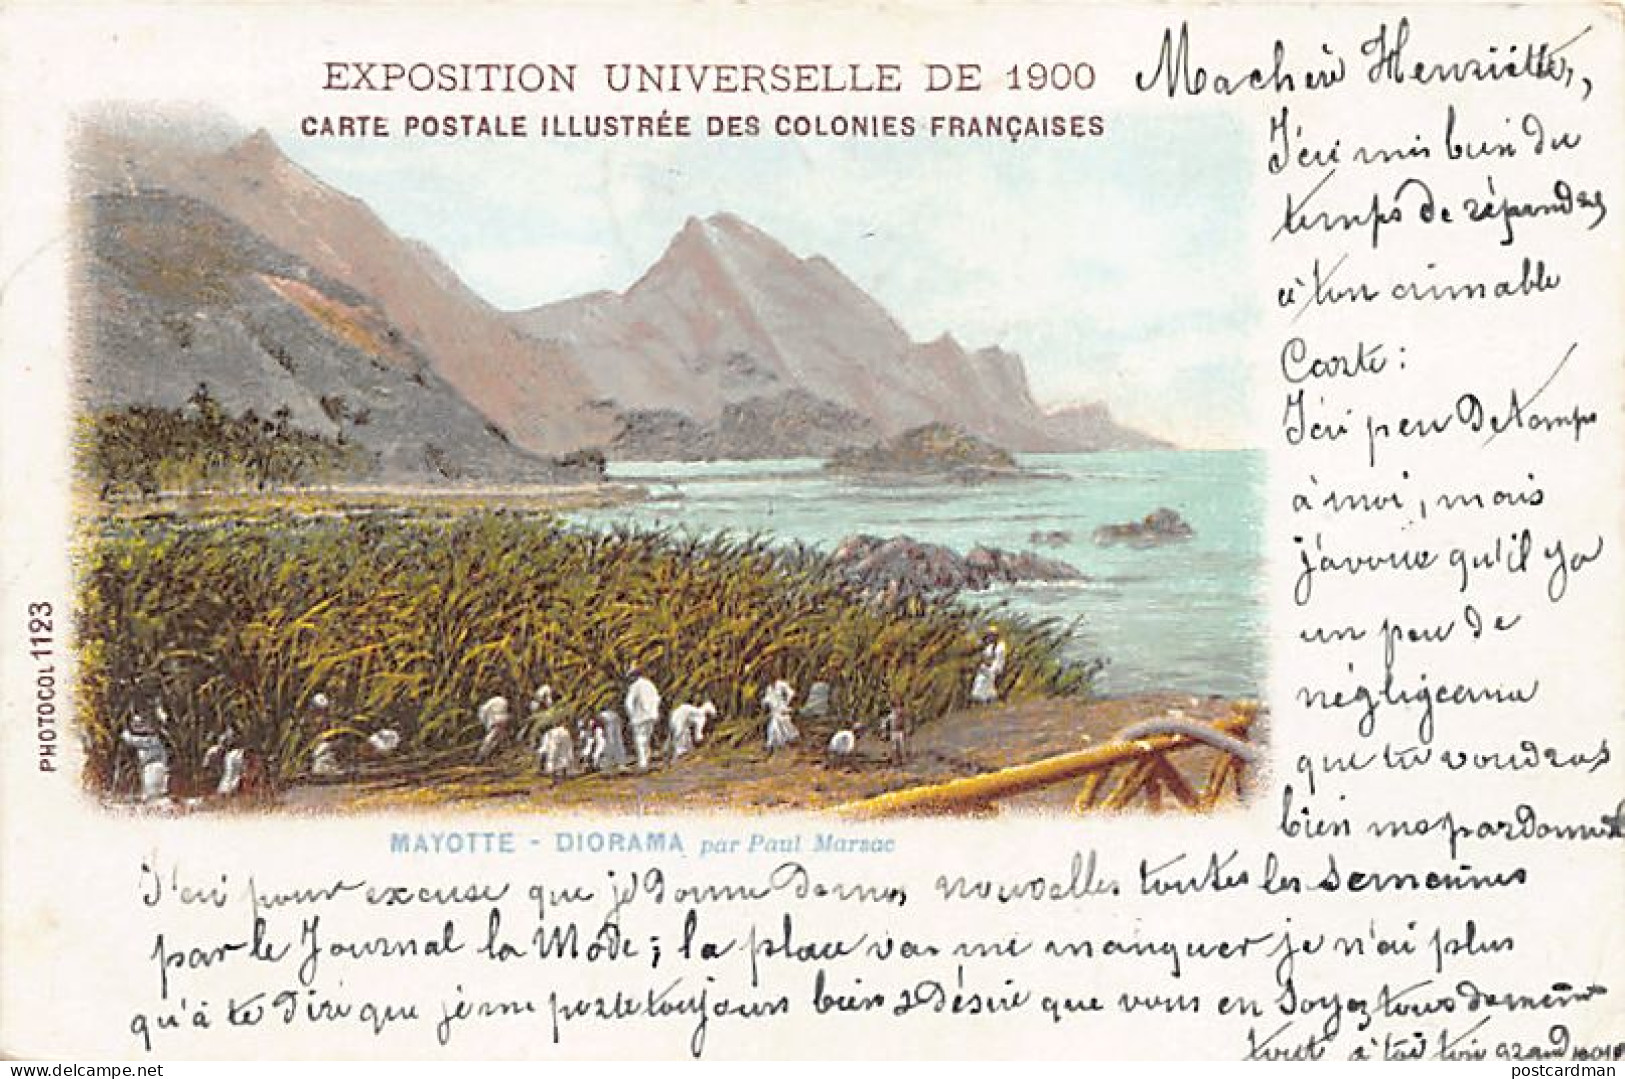 EXPOSITION UNIVERSELLE DE 1900
CARTE POSTALE ILLUSTRÉE DES COLONIES FRANÇAISES
Ma chère Henriette,
J'ai mis bien du
temps de répondre
à ton aimable
Carte :
J'ai peu de temps
à moi, mais
j'avoue qu'il y a
un peu de
négligence
que tu voudras
bien me pardonner
PHOTOCOL 1123
MAYOTTE - DIORAMA par Paul Marsac
J'ai pour excuse que je donne de mes nouvelles toutes les semaines
par le Journal la Mode ; la place va me manquer je n'ai plus
qu'à te dire que je me porte toujours bien & désire que vous en soyez tous de même
tout à toi ton grand
postcardman